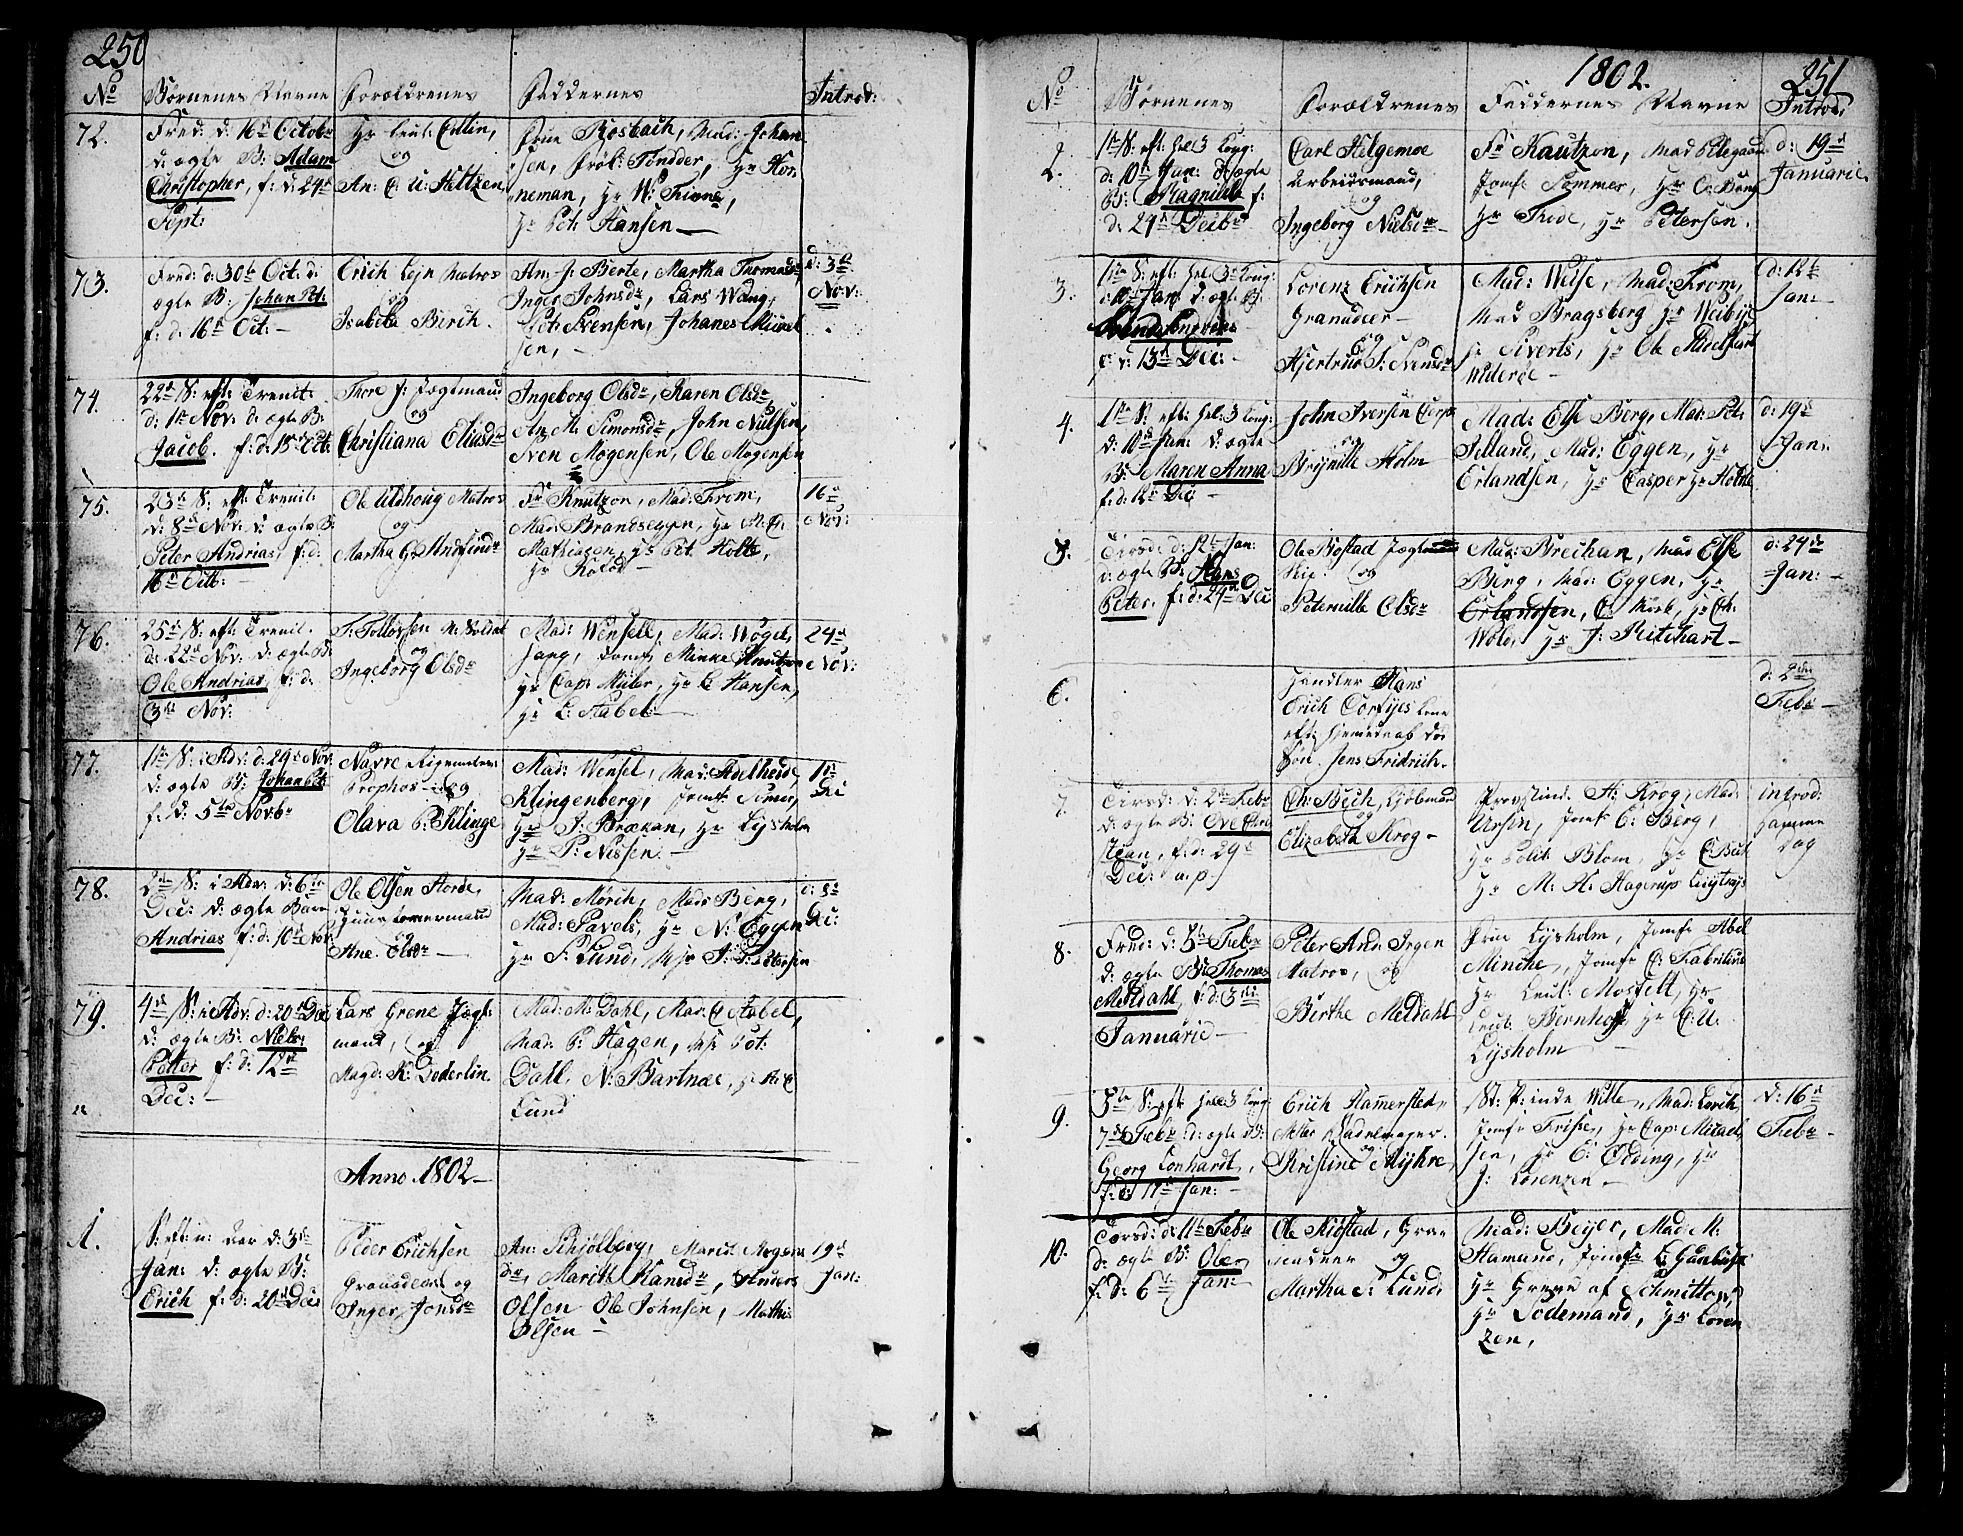 250
No Børnenes Navne Forældrenes Faddernes Introd:
72. Fred: d: 16d Octobr
d: ægte B: Adam
Christopher, f: d: 24d
Sept:
Hr Leut: Collin,
og
An: C: U: Heltzen,
Frue Rosbach, Mad: Johan
sen, Frøk: Tondder, Hr Hor
neman, Hr W:
Hr Pet: Hansen —
73. Fred: d: 30te Oct: d:
ægte B: Johan Pet:
f: d: 16d Oct: —
Erich Lejn Matros
og
Isabela Birch.
An: J: Berte, Martha Thomasdr
Inger Johnsdr, Lars Wang,
Pet: Svensen, Johanes Mikkel
sen, —
d: 3de
Nov:
74. 22de S: eft: Trenit.
d: 1te Nov: d: ægte B:
Jacob. f: d: 15de Oct:
Thore J: Jægtmand
og
Christiana Eliasdr
Ingeborg Olsdr, Karen Olsdr,
An: M: Simonsdr, John Nielsen,
Sven Mogensen, Ole Mogensen
75. 23de S: eft: Trenit:
d: 8de Nov: d: ægte B:
Peter Andrias, f: d:
16d Octb: —
Ole Uldhoug Matros
og
Martha G:
Fr Knutzon, Mad: From,
Mad: Brandseggen, Hr M: C:
Mathiasen, Hr Pet: Holte,
Hr
16d
Nov:
76. 25de S: eft: Trenit.
d: 22de Nov: d: ægte B:
Ole Andrias, f: d:
3de Nov:
T: Tollofsen N: Soldat
og
Ingeborg Olsdr
Mad: Wensell, Mad: Wogel,
Jomf: Minke Knutzon
Hr Cap: Müler, Hr C Hansen,
Hr C: Stabel —
24d
Nov:
77. 1te S: i Adv: d: 29d Nov:
d: ægte B: Johan Pet:
f: d: 5te Novbr
Navre Regements
Prophos — og
Olava P: Klinge
Mad: Wensel, Mad: Adelheide
Klingenberg, Jomf:
Hr J: Brækan, Hr Lysholm
Hr P: Nissen. —
1te
Dec
78. 2den S: i Adv: d: 6te
Dec: d: ægte Barn
Andrias f: d: 10d Nov:
Ole Olsen Horde,
Huustømermand
og
Ane Olsdr —
Mad: Mørch, Mad: Berg,
Mad: Pavels, Hr N: Eggen
Hr S: Lund, Msr J: P: Petersen
d: 8d
Dec:
79. 4de S: i Adv: d: 20d Dec
d: ægte B: Niels
Petter f: d: 12d
Dec: —
Lars Grene Jægt
mand, og
Magd: K: Doderlin
Mad: M: Dahl, Mad: C Stabel,
Mad: P: Hagen, Msr Pet:
Dahl, N: Bartnæs,
Lund
Anno 1802 —
1. S: eft: n: Aar d: 3de
Jan: d: ægte B:
Erich f: d: 20d Dec:
Peder Erichsen
Granadeer og
Inger Jonsdr
An: Schjølberg, Marit Mogens
dr, Marith Hansdr, Anders
Olsen Ole Johnsen, Mathis
Olsen —
19d
Jan:
1802. 251
No Børnenes Forældrenes Faddernes Navne Introd:
2. 1te S: eft: Hel: 3 Kong:
d: 10d Jan: d: ægte
B: Magnille f:
d: 29d Decbr
Carl Helgemoe
Arbeidsmand,
og
Ingeborg Nielsdr —
Fr Kautzon, Mad Petegaard
Jomf: Sommer, Hr C: Bang
Hr Thode, Hr Petersen.
d: 19d
Januarie
3. 1te S: eft: Hel: 3 Kong:
d: 10d Jan: d: ægte B:
f: d: 13d Dec: —
Lorenz Erichsen
Granadeer —
og
Hjertrud S: Svensdr
Mad: Welse, Mad: From,
Mad Bragsberg Hr Weibye
Hr Siverts, Hr Ole Midelfart
Wideröe —
d: 12te
Jan: —
4. 1te S: eft: Hel: 3 Kong:
d: 10d Jan: d: ægte
B: Maren Anna
f: d: 12d Dec —
John Iversen Corp:
og
Brynille Holm
Mad: Else Berg, Mad: Pet:
Mad: Eggen, Hr
Erlandsen, Hr Casper Hr Holte
d: 19d
Jan:
5. Tirsd: d: 12te Jan:
d: ægte B: Hans
Peter, f: d: 24d Dec
Ole Bostad Jægt
Skip: og
Peternille Olsdr
Mad: Brechan, Mad Else
Berg, Mad: Eggen, Hr
Erlandsen, C: Mirk, Hr Ch:
Wole, Hr J: Ritchart —
d: 24de
Jan: —
6. Handler Hans
Erich Corfijes Kone
eft: Hjemedøb død
Søn. Jens Fridrich.
d: 2den
Febr —
7. Tirsd: d: 2den Febr
d: ægte B: Ove Chri
stian, f: d: 29d
Dec: a. p.
Ch: Bech, Kjøbmand
og
Elizabeth Krog —
Provstind. H: Krog, Mad:
Ursin, Jomf: C: Berg,
Hr Polit: Blom, Hr C: Bech
Hr M: H: Hagerup
introd:
samme
Dag
8. Fred: d: 5te Febr
d: ægte B: Thomas
Meldahl, f: d: 3de
Januarie —
Peter And: Irgen
Matros, og
Birthe Meldahl
Frue Lysholm, Jomfr Abel
Minche, Jomfr C: Fabritius
Hr Leut: Mostelt, Hr
Leut: Bernhoff, Hr C: U:
Lysholm —
9. 5te S: eft: Hel: 3 Kong:
7de Febr d: ægte B:
Georg Lonhardt,
f: d: 17d Jan: —
Erich Hamerstedr,
Mster Sadelmager.
og
Kristine Myhre,
St: P: inde Wille, Mad: Lorck,
Jomfr Friis, Hr Cap: Micael
sen, Hr C: Elding, Hr
J: Lorenzen —
d: 16d
Febr —
10. Torsd: d: 11te Febr
d: ægte B: Ole,
f: d: 6te Jan:
Ole Kiøstad, Gra
nadeer og
Martha S: Lund:
Mad: Beyer, Mad M:
Hamand, Jomfr
Hr Greve af Schmittow,
Hr Sodemand, Hr Loren
zen,